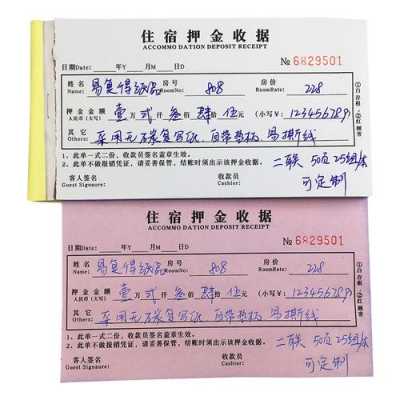 住宿押金收据
ACCOMMO DATION DEPOSIT RECEIPT
日期Date: 年Y 月M 日D № 6829501
姓名 Name 易复得纸品 房号 808 房价 RoomRate: 228
押金金额 人民币(大写) 壹万贰仟叁佰肆拾伍元 (小写￥): 123456789
其它 Others: 采用无碳复写纸,自带垫板 易撕线
1、此单一式二份,收款员签名盖章生效。
2、此单不做报销凭证,请妥善保管,结账时须出示该押金收据。
客人签名 Guest Signsure: 收款员 Cashier:
二联 50页 25组/本
可定制
①白存根 ②红顾客
住宿押金收据
ACCOMMO DATION DEPOSIT RECEIPT
日期Date: 年Y 月M 日D № 6829501
姓名 Name 易复得纸品 房号 808 房价 RoomRate: 228
押金金额 人民币(大写) 壹万贰仟叁佰肆拾伍元 (小写￥): 123456789
其它 Others: 采用无碳复写纸,自带垫板 易撕线
1、此单一式二份,收款员签名盖章生效。
2、此单不做报销凭证,请妥善保管,结账时须出示该押金收据。
客人签名 Guest Signsure: 收款员 Cashier:
二联 50页 25组/本
可定制
①白存根 ②红顾客